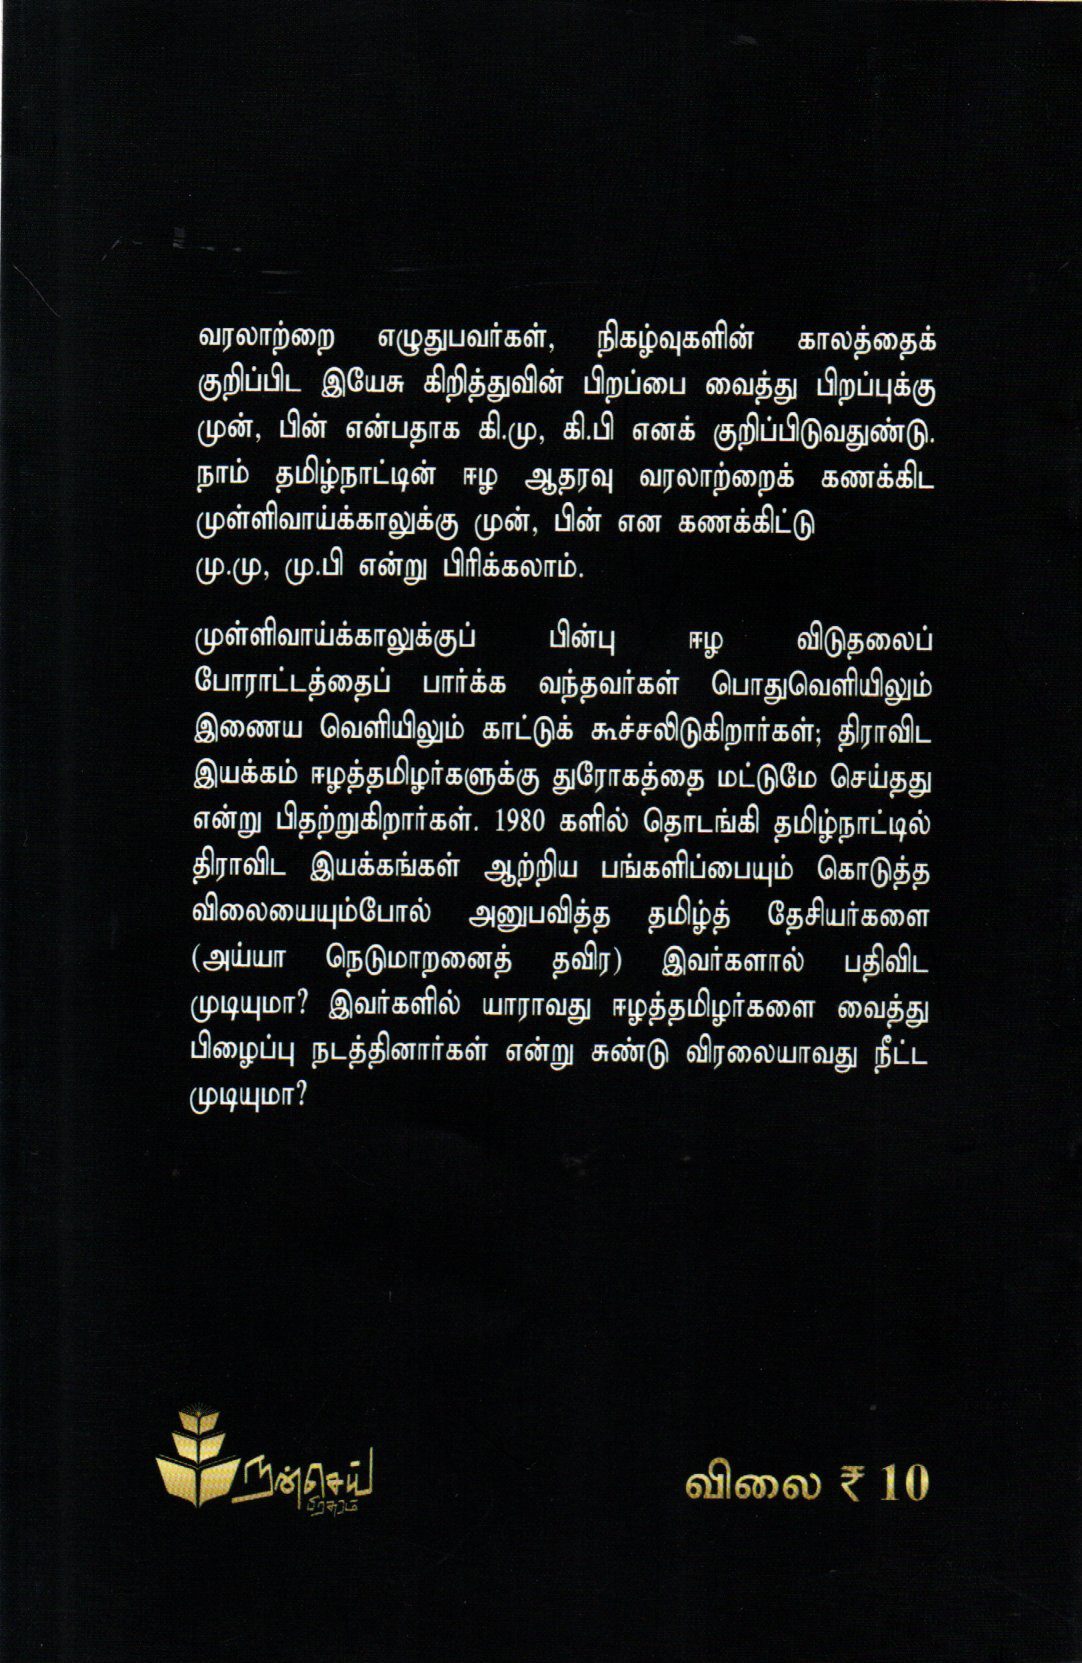 வரலாற்றை எழுதுபவர்கள், நிகழ்வுகளின் காலத்தைக்
குறிப்பிட இயேசு கிறித்துவின் பிறப்பை வைத்து பிறப்புக்கு
முன், பின் என்பதாக கி.மு, கி.பி எனக் குறிப்பிடுவதுண்டு.
நாம் தமிழ்நாட்டின் ஈழ ஆதரவு வரலாற்றைக் கணக்கிட
முள்ளிவாய்க்காலுக்கு முன், பின் என கணக்கிட்டு
மு.மு, மு.பி என்று பிரிக்கலாம்.
முள்ளிவாய்க்காலுக்குப் பின்பு ஈழ விடுதலைப்
போராட்டத்தைப் பார்க்க வந்தவர்கள் பொதுவெளியிலும்
இணைய வெளியிலும் காட்டுக் கூச்சலிடுகிறார்கள்; திராவிட
இயக்கம் ஈழத்தமிழர்களுக்கு துரோகத்தை மட்டுமே செய்தது
என்று பிதற்றுகிறார்கள். 1980 களில் தொடங்கி தமிழ்நாட்டில்
திராவிட இயக்கங்கள் ஆற்றிய பங்களிப்பையும் கொடுத்த
விலையையும்போல் அனுபவித்த தமிழ்த் தேசியர்களை
(அய்யா நெடுமாறனைத் தவிர) இவர்களால் பதிவிட
முடியுமா? இவர்களில் யாராவது ஈழத்தமிழர்களை வைத்து
பிழைப்பு நடத்தினார்கள் என்று சுண்டு விரலையாவது நீட்ட
முடியுமா?
நன்செய்
பிரசுரம்
விலை ₹ 10